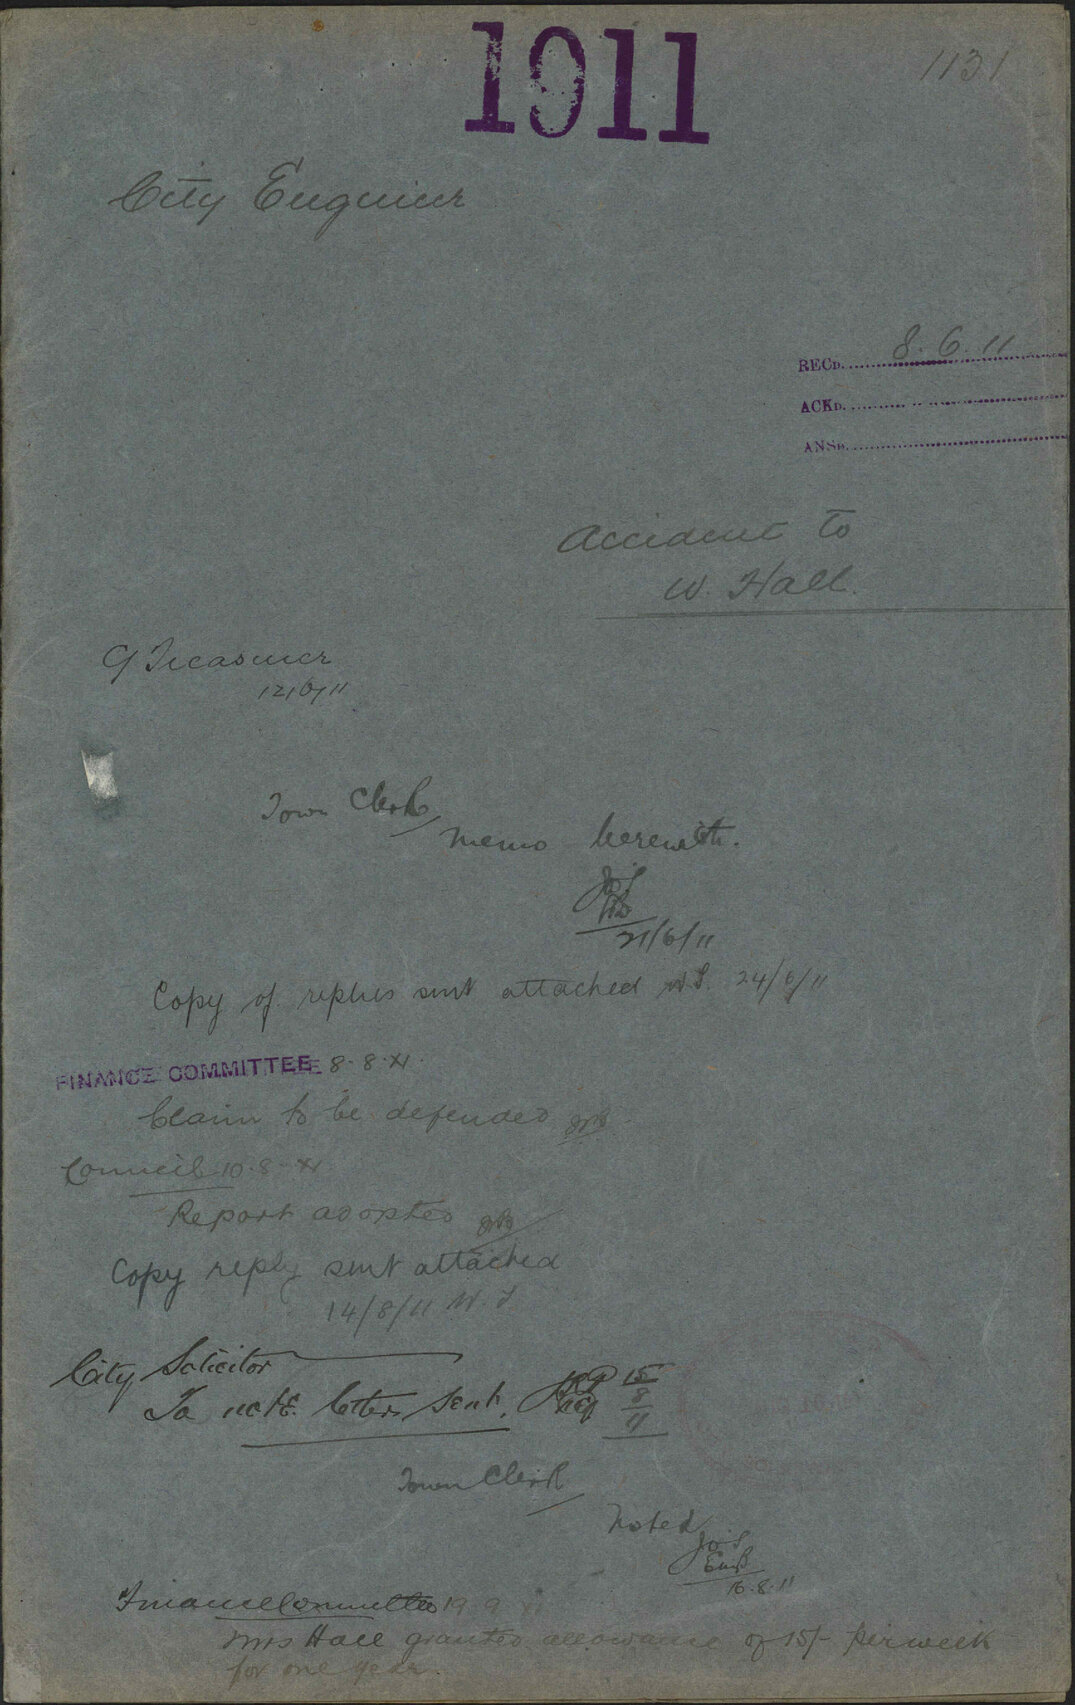 1911
1131
City Engineer
RECD. 8.6.11
ACKD.
ANSD.
Accident to
W. Hall.
C/ Treasurer
12/6/11
Town Clerk,
Memo herewith.
21/6/11
Copy of replies sent attached W.S. 24/6/11
FINANCE COMMITTEE 8-8-XI.
Claim to be defended
Council 10-8-XI
Report adopted
Copy reply sent attached
14/8/11 W.S
City Solicitor
To note letters sent. 15/8/11
Town Clerk
Noted
16.8.11
Finance Committee 19 9 XI
Mrs Hall granted allowance of 15/- per week
for one year.